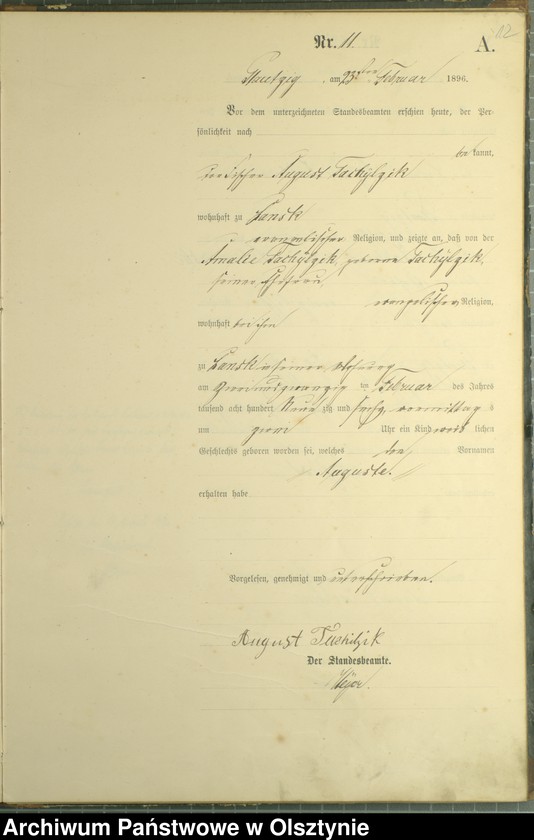 Nr. 11.
A.
am 23ten Februar 1896.
Vor dem unterzeichneten Standesbeamten erschien heute, der Per-
sönlichkeit nach
be kannt,
der Fischer August Tachilzik
wohnhaft zu Lansk
evangelischer Religion, und zeigte an, daß von der
Amalie Tachilzik, geborene Tachilzik,
seiner Ehefrau
evangelischer Religion,
wohnhaft bei ihm
zu Lansk in seiner Wohnung
am zweiundzwanzig ten Februar des Jahres
tausend acht hundert Neun zig und sechs, vormittag s
um Uhr ein Kind weib lichen
Geschlechts geboren worden sei, welches den Vornamen
Auguste.
erhalten habe
Vorgelesen, genehmigt und unterschrieben.
August Tachilzik
Der Standesbeamte.
Archiwum Państwowe w Olsztynie